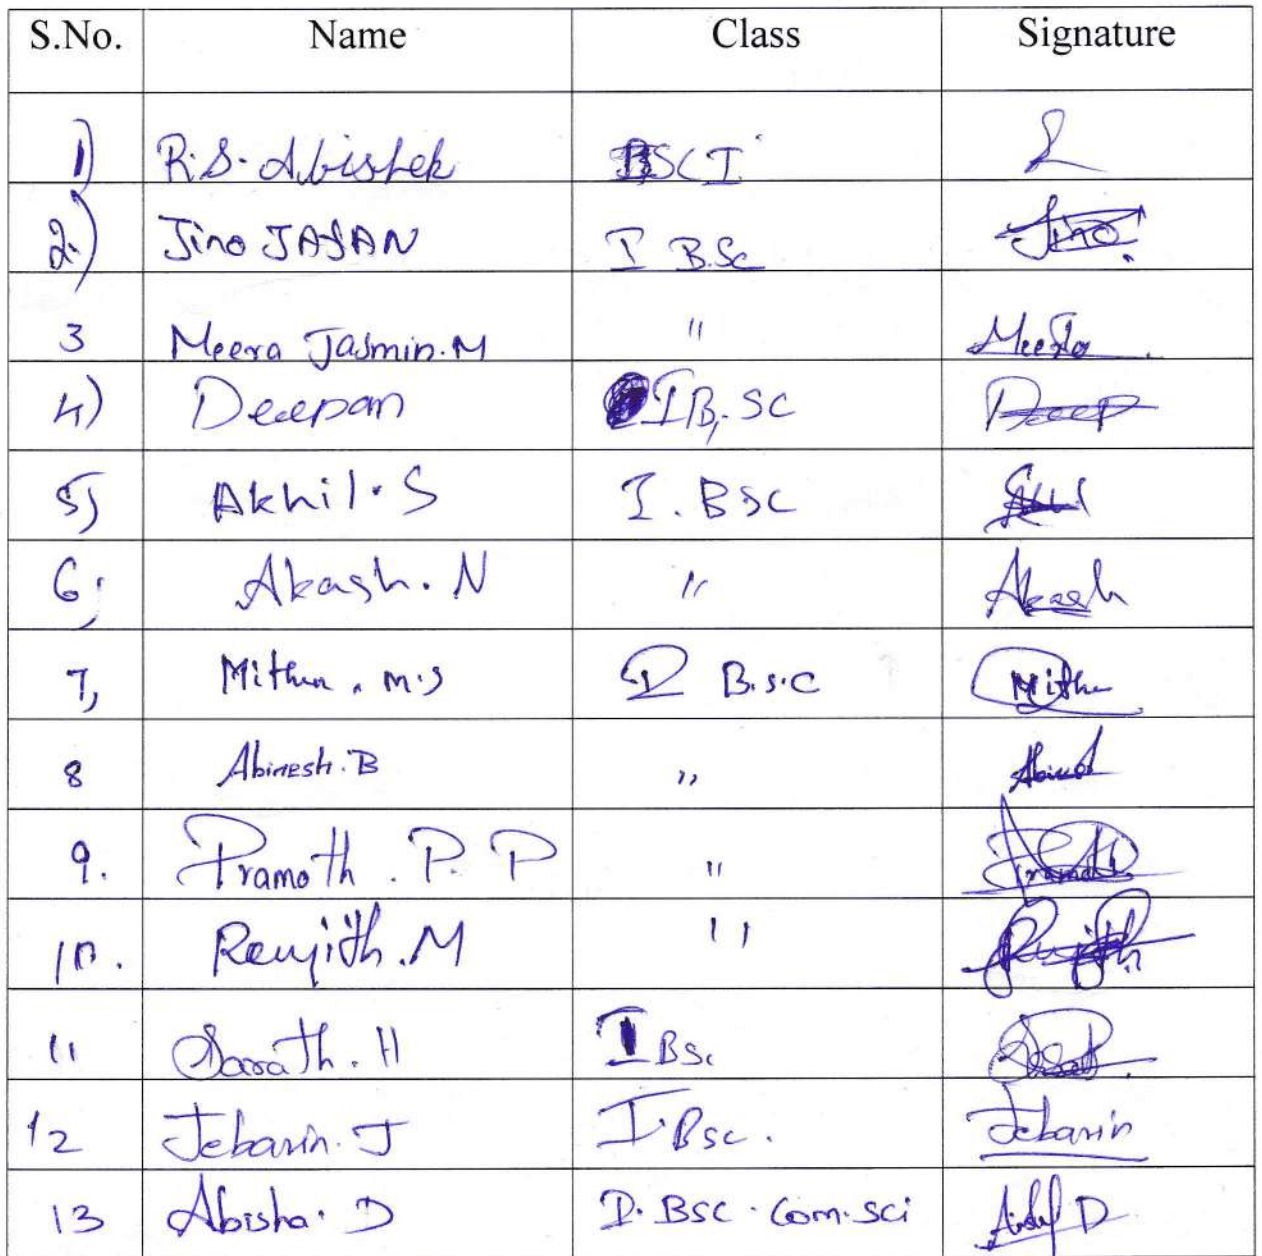 S.No. Name Class Signature
1) R.S. Abishek BSC I
2.) Jino JASAN I B.Sc Jino
3 Meera Jasmin.M " Meera
4) Deepan I B.SC Deep
5) Akhil.S I. BSC Akhil
6) Akash. N " Akash
7) Mithun. M.S I B.S.C Mithu
8 Abinesh.B "
9. Pramoth. P. P " Pramoth.
10. Renjith.M " Renjith
11 Sarath. H I BSc
12 Jebarin. J I. Bsc. Jebarin
13 Abisha. D I. BSC. Com. Sci D